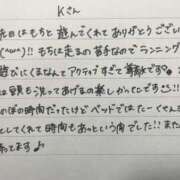 Kさん
先日はもちと遊んでくれてありがとうござい
(^ω^)!! もちは走るの苦手なのでランニング
遊びにくるなんてアクティブすぎて尊敬です
は頭も洗ってあげるの楽しかったです!!!
のぼの時間だったけどベッドではたーくさん
としてくれて時間もあっという間でした!! また
待ってます♪